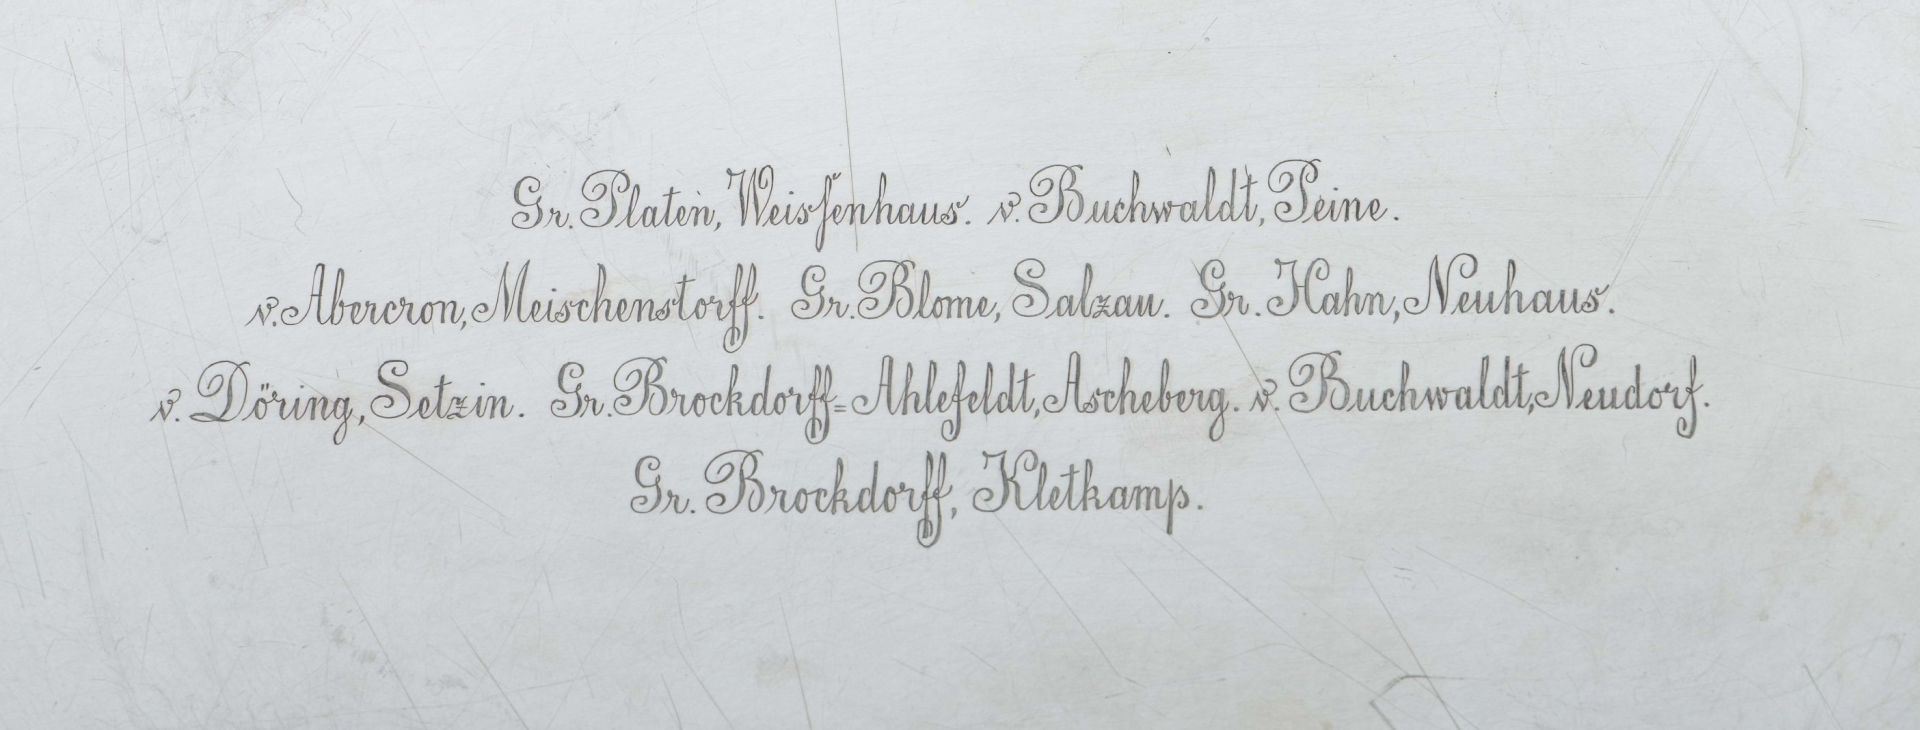 Gr. Platen, Weisſenhaus. v. Buchwaldt, Peine.
v. Abercron, Meischenstorff. Gr. Blome, Salzau. Gr. Hahn, Neuhaus.
v. Döring, Setzin. Gr. Brockdorff=Ahlefeldt, Ascheberg. v. Buchwaldt, Neudorf.
Gr. Brockdorff, Kletkamp.